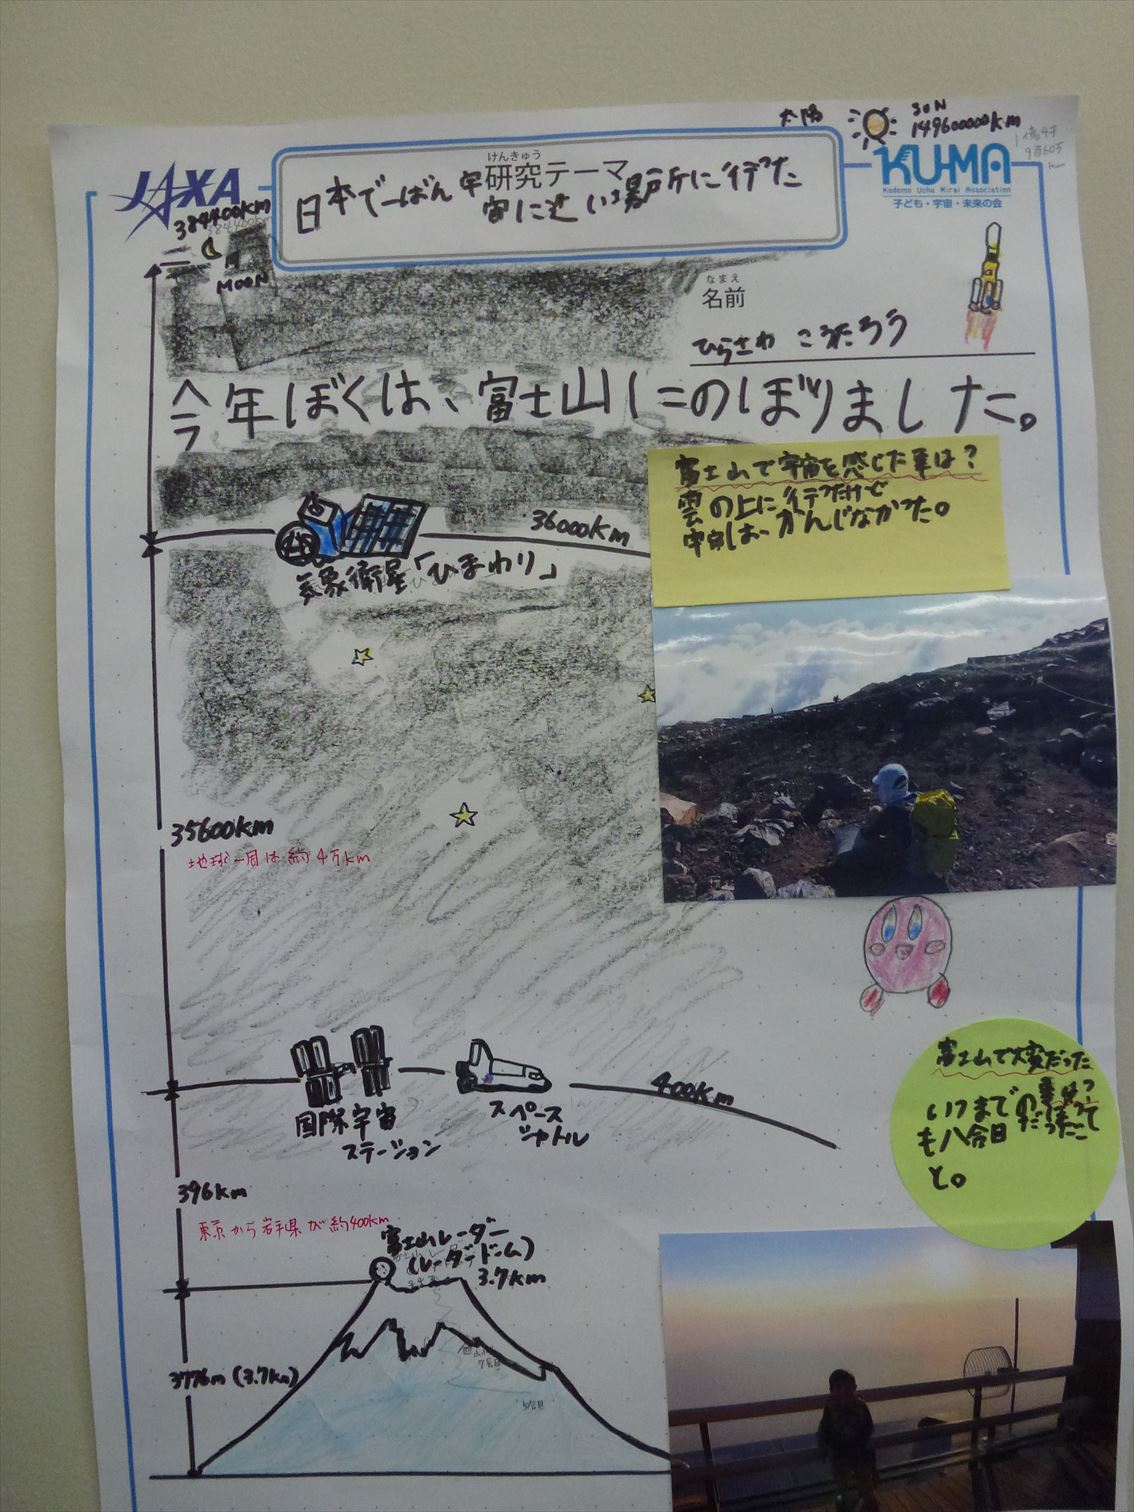 太陽
SUN
149600000km
1億4千
9百60万
km
JAXA
KU-MA
Kodomo Uchu Mirai Association
子ども・宇宙・未来の会
けんきゅう
研究テーマ
日本で一ばん宇宙に近い場所に行った
384400km
MOON
なまえ
名前
ひらさわ こうたろう
今年ぼくは、富士山にのぼりました。
富士山で宇宙を感じた事は?
雲の上に行っただけで
宇宙は、かんじなかった。
36000km
気象衛星「ひまわり」
35600km
地球一周は約4万km
400km
国際宇宙
ステーション
スペース
シャトル
富士山で大変だった
事は?
いつまでのぼって
も八合目だったこ
と。
396km
東京から岩手県が約400km
富士山レーダー
(レーダードーム)
3.7km
3776m (3.7km)
7合目